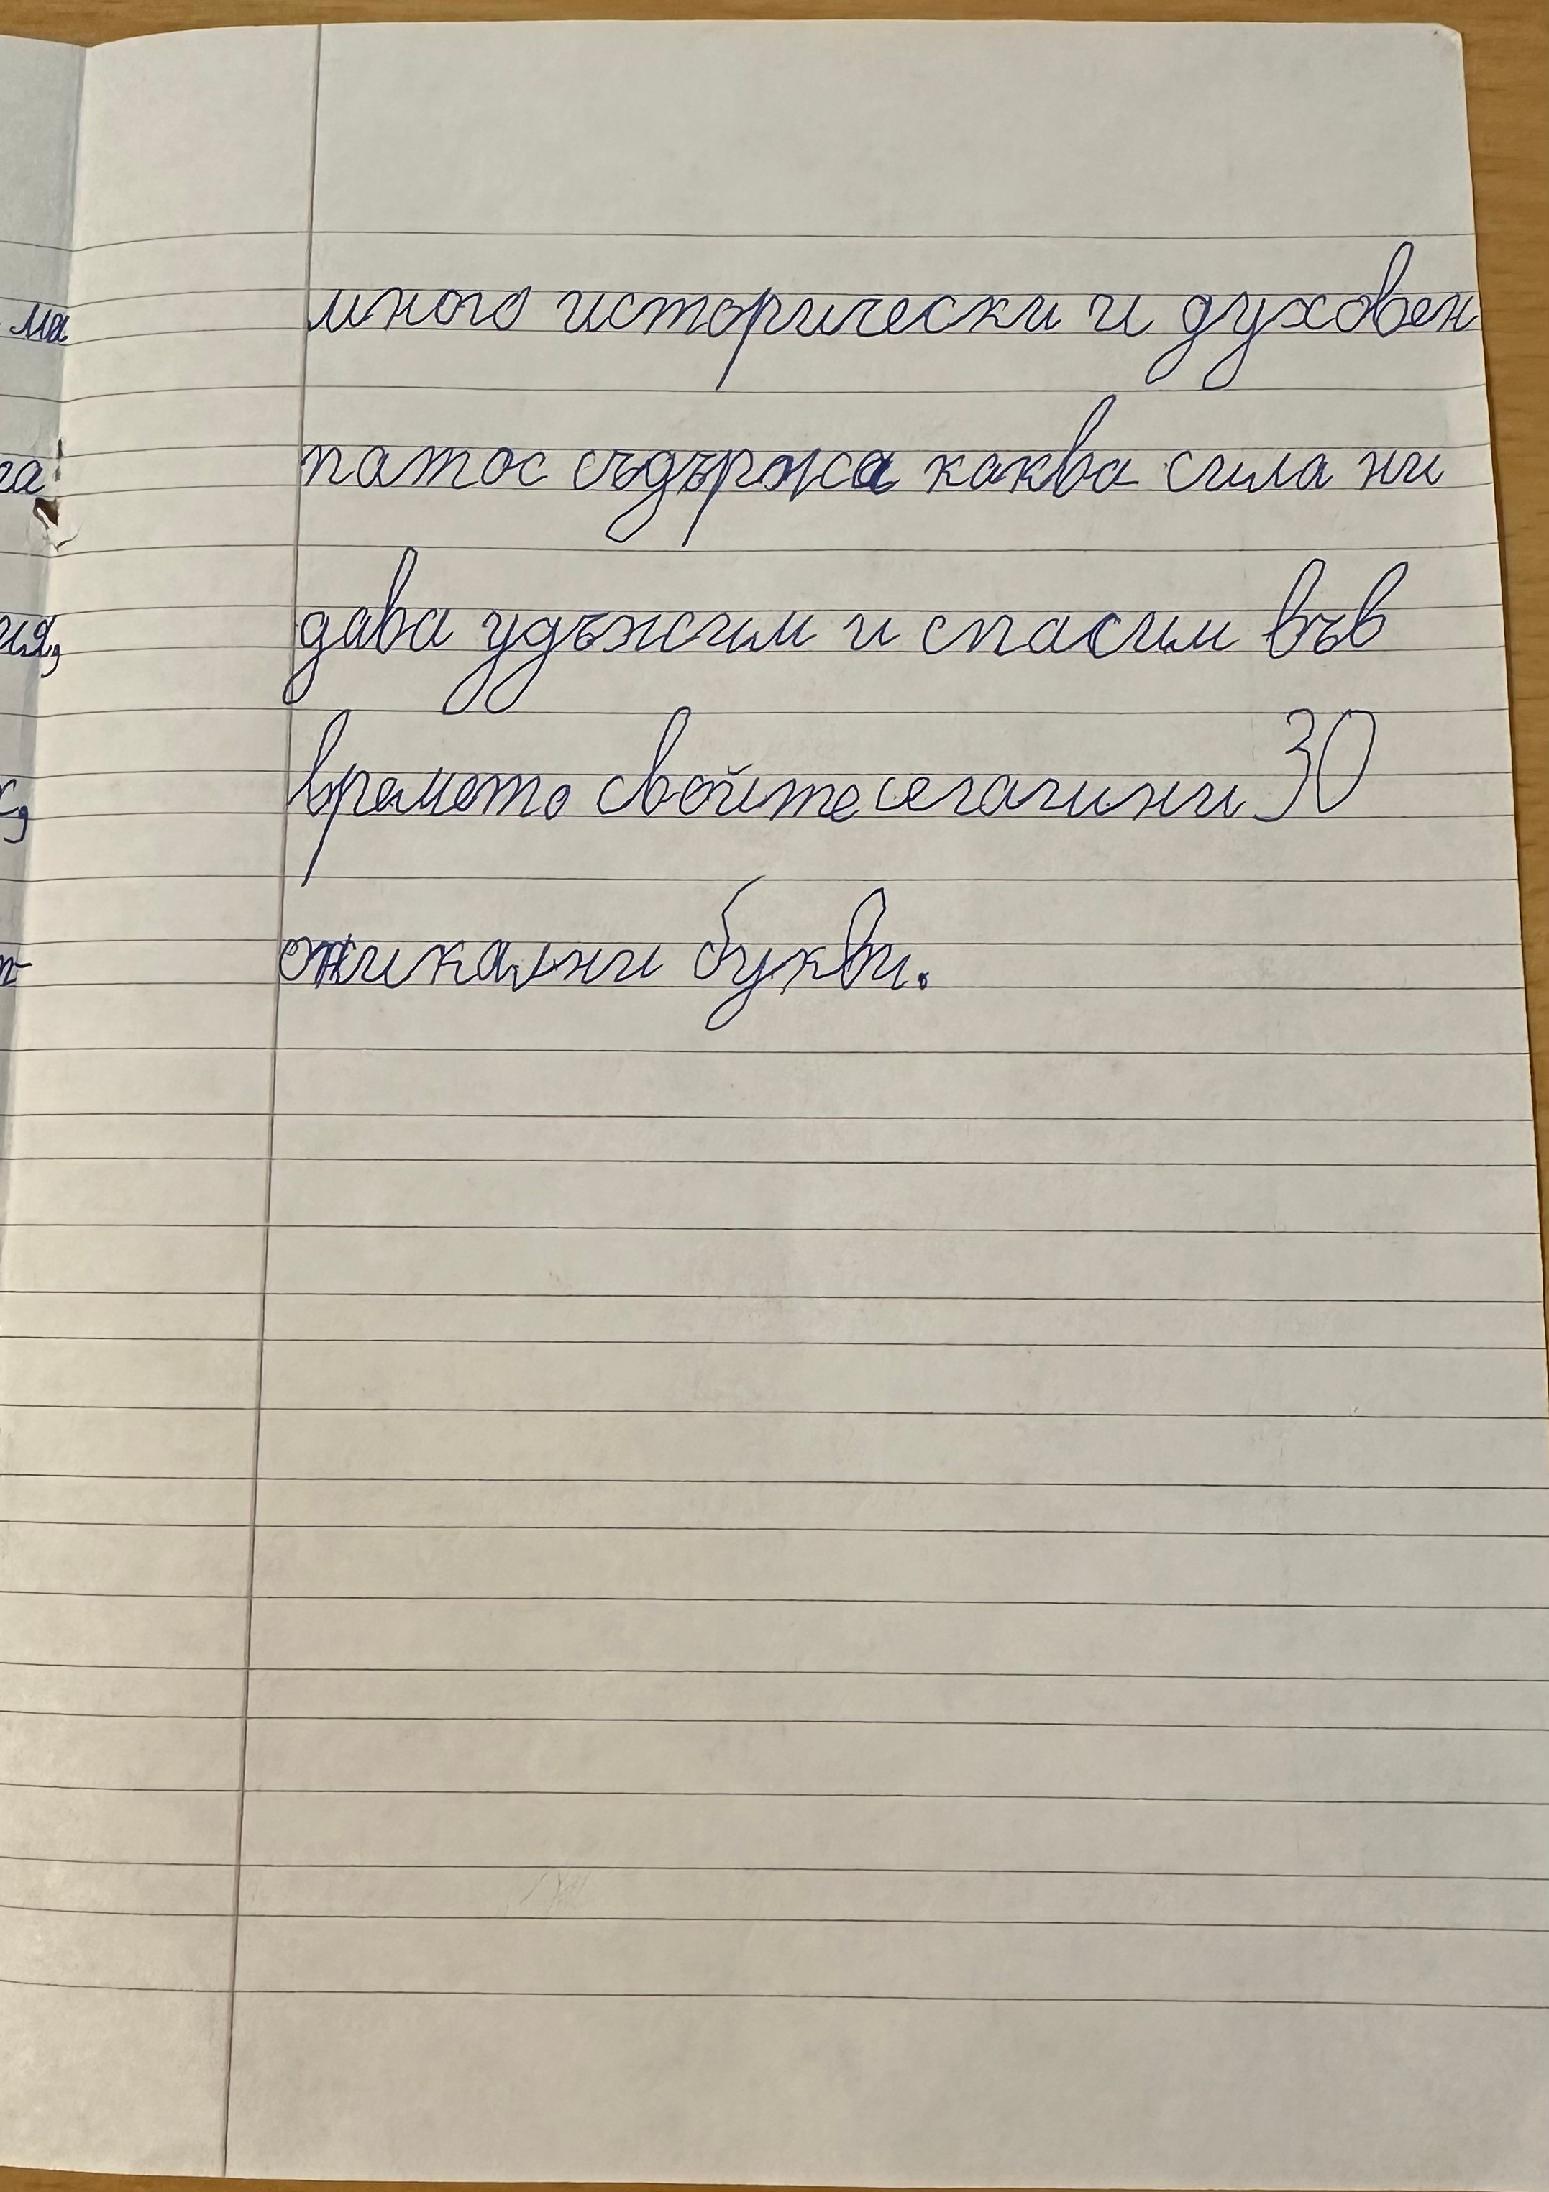 много исторически и духовен
патос съдържа каква сила ни
дава удъжим и спасим във
времето свойте сегагини 30
букви.